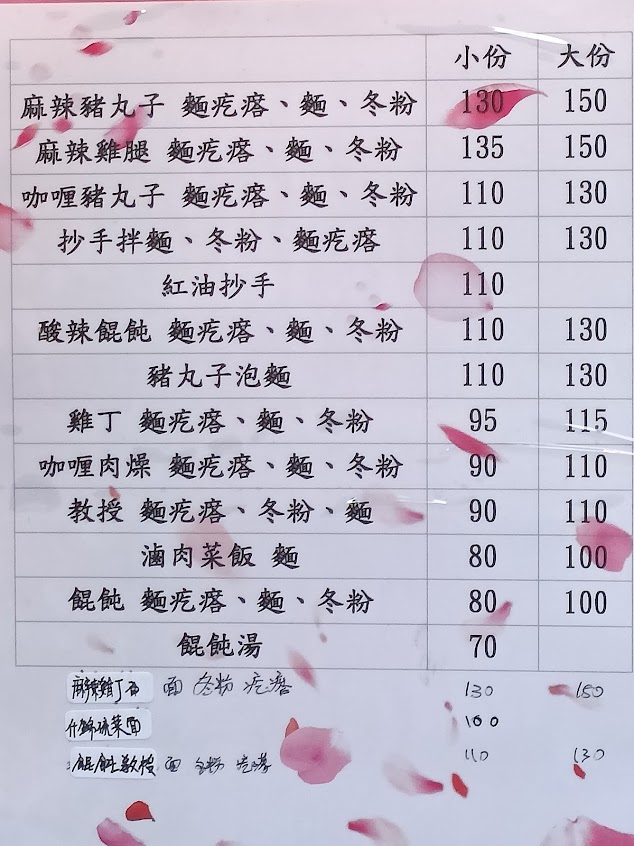 小份 大份
麻辣豬丸子 麵疙瘩、麵、冬粉 130 150
麻辣雞腿 麵疙瘩、麵、冬粉 135 150
咖喱豬丸子 麵疙瘩、麵、冬粉 110 130
抄手拌麵、冬粉、麵疙瘩 110 130
紅油抄手 110
酸辣餛飩 麵疙瘩、麵、冬粉 110 130
豬丸子泡麵 110 130
雞丁 麵疙瘩、麵、冬粉 95 115
咖喱肉燥 麵疙瘩、麵、冬粉 90 110
教授 麵疙瘩、冬粉、麵 90 110
滷肉菜飯 麵 80 100
餛飩 麵疙瘩、麵、冬粉 80 100
餛飩湯 70
麻辣雞丁 面 冬粉 疙瘩 130 150
什錦蔬菜面 100
餛飩教授 面 冬粉 疙瘩 110 130